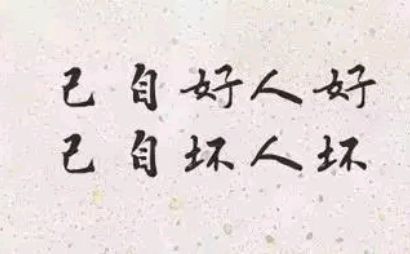 好人好自己
坏人坏自己